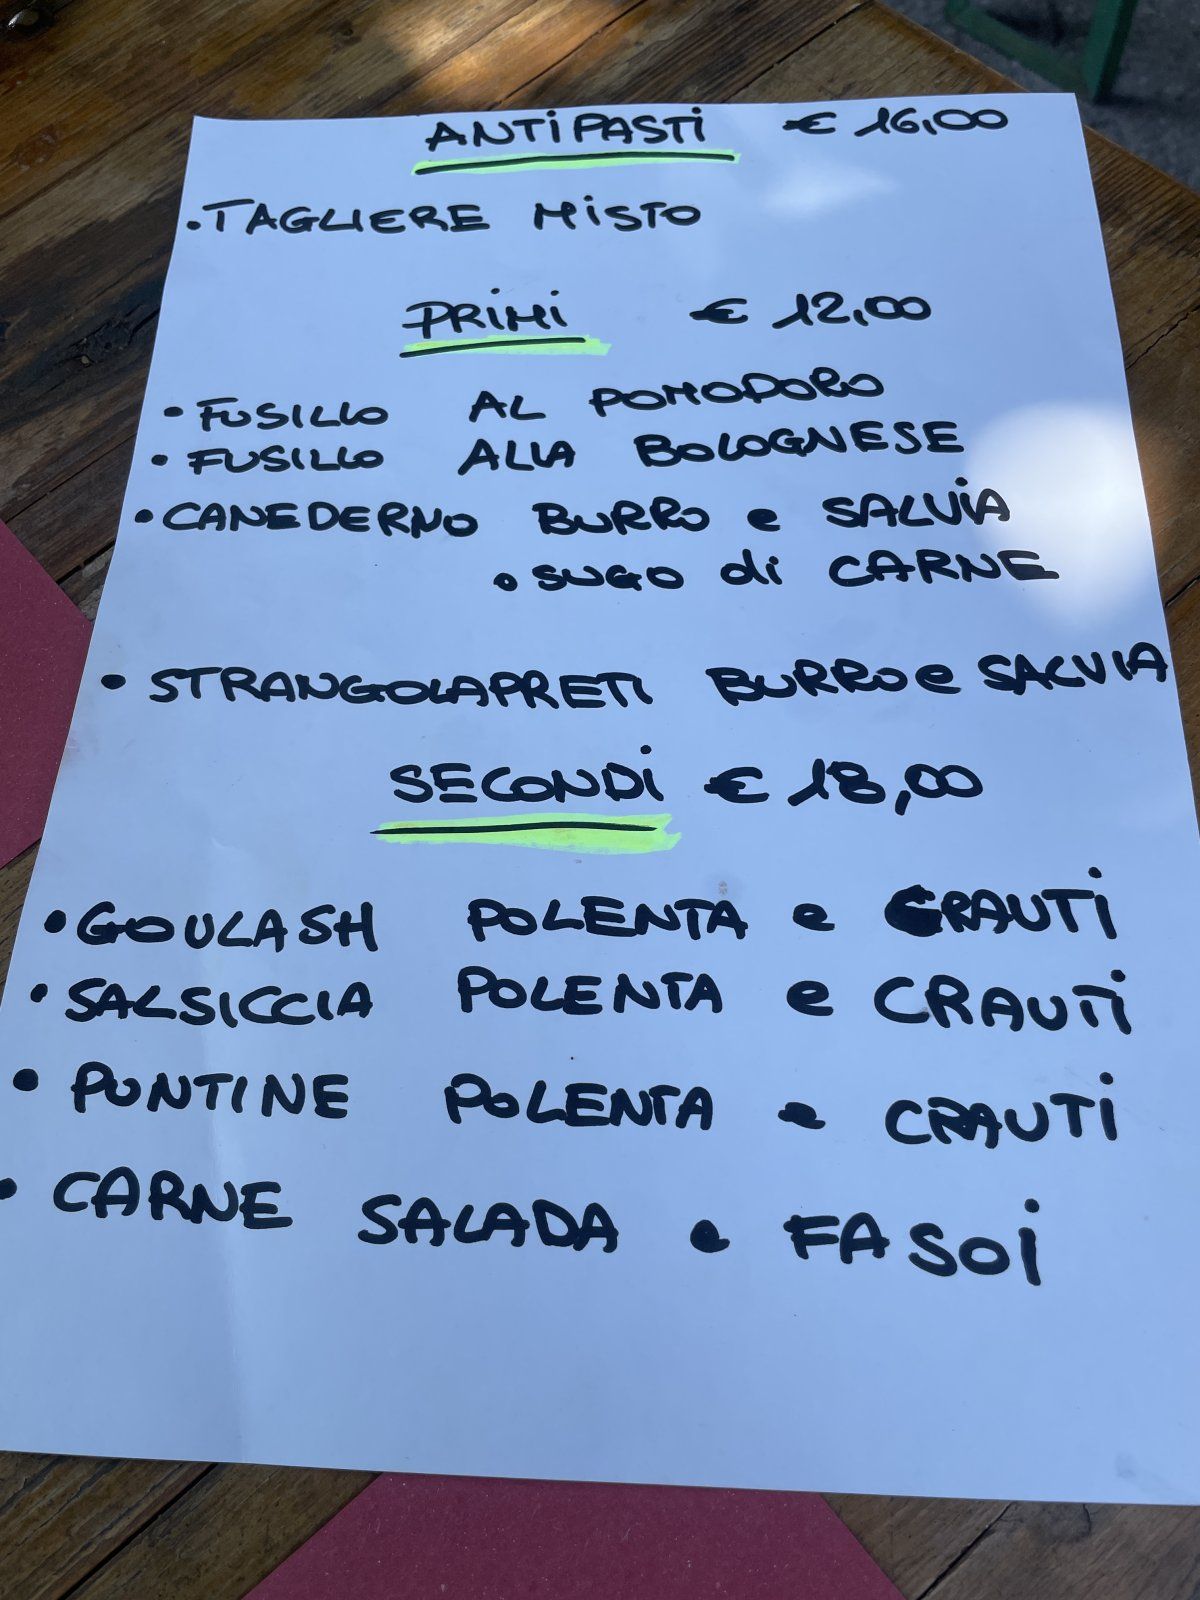 ANTIPASTI € 16,00
• TAGLIERE MISTO
PRIMI € 12,00
• FUSILLO AL POMODORO
• FUSILLO ALLA BOLOGNESE
• CANEDERNO BURRO e SALVIA
• SUGO di CARNE
• STRANGOLAPRETI BURRO e SALVIA
SECONDI € 18,00
• GOULASH POLENTA e CRAUTI
• SALSICCIA POLENTA e CRAUTI
• PUNTINE POLENTA e CRAUTI
• CARNE SALADA e FASOI